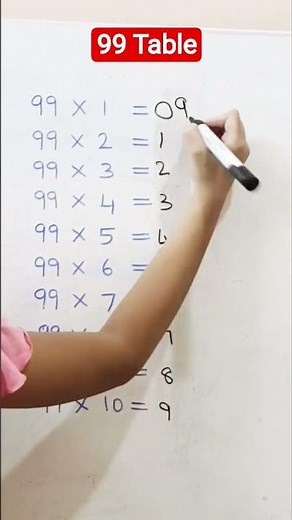 99 Table
99 × 1 = 09
99 × 2 = 1
99 × 3 = 2
99 × 4 = 3
99 × 5 = 4
99 × 6 =
99 × 7
7
= 8
× 10 = 9